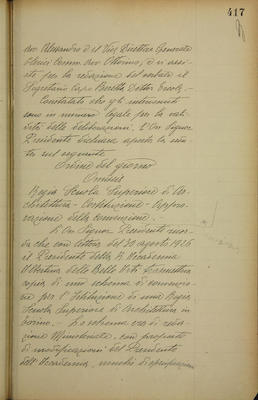 417
avv. Alessandro e il Vice Direttore Generale
Comm. avv. Ottorino, e si assi-
ste per la redazione del verbale il
Segretario Capo Beretta Dottor
Constatato che gl' intervenuti
sono in numero legale per la vali-
dità delle deliberazioni, l'On. Signor
Presidente dichiara aperta la sedu-
ta sul seguente
Ordine del giorno
Omissis
Regia Scuola Superiore di Ar-
chitettura - Costituzione - Appro-
vazione della convenzione. -
L'On. Signor Presidente ricor-
da che con lettera del 30 agosto 1926
il Presidente della R. Accademia
Albertina delle Belle Arti trasmetteva
copia di uno schema di convenzio-
ne per l'Istituzione di una Regia
Scuola Superiore di Architettura in
Torino. - Lo schema era di reda-
zione Ministeriale, con proposte
di modificazioni del Presidente
dell'Accademia, nonché di